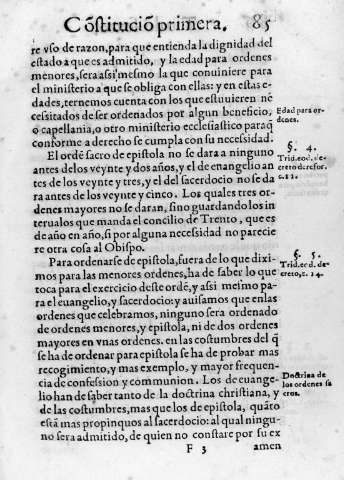 Cõstituciõ primera. 85
re vso de razon, para que entienda la dignidad del
estado a que es admitido, y la edad para ordenes
menores, sera assi mesmo la que conuiniere para
el ministerio a que se obliga con ellas: y en estas e-
dades, ternemos cuenta con los que estuuieren ne
cessitados de ser ordenados por algun beneficio,
o capellania, o otro ministerio ecclesiastico para q̃
conforme a derecho se cumpla con su necessidad.
El ordẽ sacro de epistola no se dara a ninguno
antes de los veynte y dos años, y el de euangelio an
tes de los veynte y tres, y el del sacerdocio no se da
ra antes de los veynte y cinco. Los quales tres or-
denes mayores no se daran, sino guardando los in
terualos que manda el concilio de Trento, que es
de año en año, si por alguna necessidad no parecie
re otra cosa al Obispo.
Para ordenarse de epistola, fuera de lo que dixi-
mos para las menores ordenes, ha de saber lo que
toca para el exercicio deste ordẽ, y assi mesmo pa-
ra el euangelio, y sacerdocio: y auisamos que en las
ordenes que celebramos, ninguno sera ordenado
de ordenes menores, y epistola, ni de dos ordenes
mayores en vnas ordenes. en las costumbres del q̃
se ha de ordenar para epistola se ha de probar mas
recogimiento, y mas exemplo, y mayor frequen-
cia de confession y communion. Los de euange-
lio han de saber tanto de la doctrina christiana, y
de las costumbres, mas que los de epistola, quãto
està mas propinquos al sacerdocio: al qual ningu-
no sera admitido, de quien no constare por su ex
F 3 amen
Edad para or-
denes.
§. 4.
Trid. eod. de-
creto de refor.
c. 12.
§. 5.
Trid. eod. de-
creto, c. 14.
Doctrina de
los ordenes sa
cros.